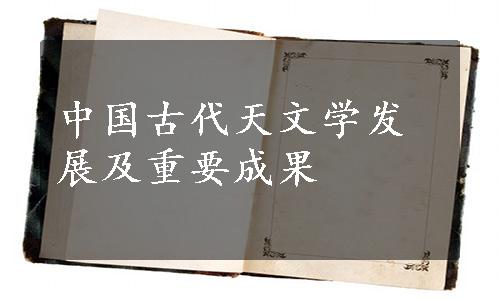 中国古代天文学发
展及重要成果